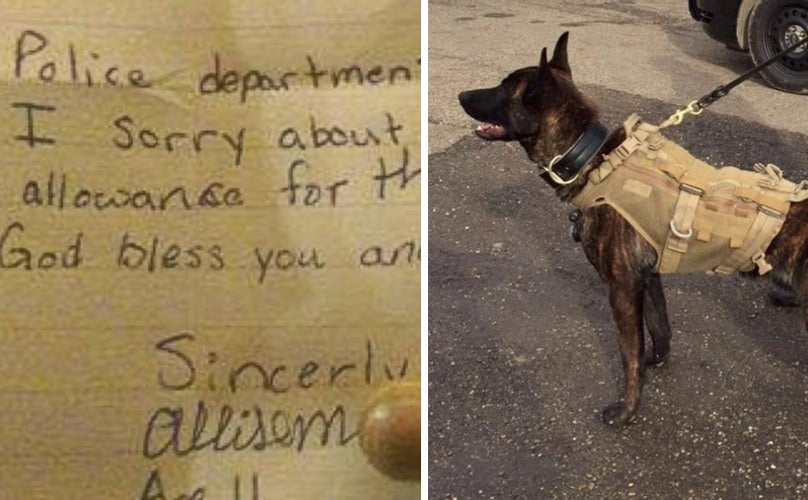 Police departmen
I sorry about
allowanse for th
God bless you an
Sincerly
Allisom
Age 11